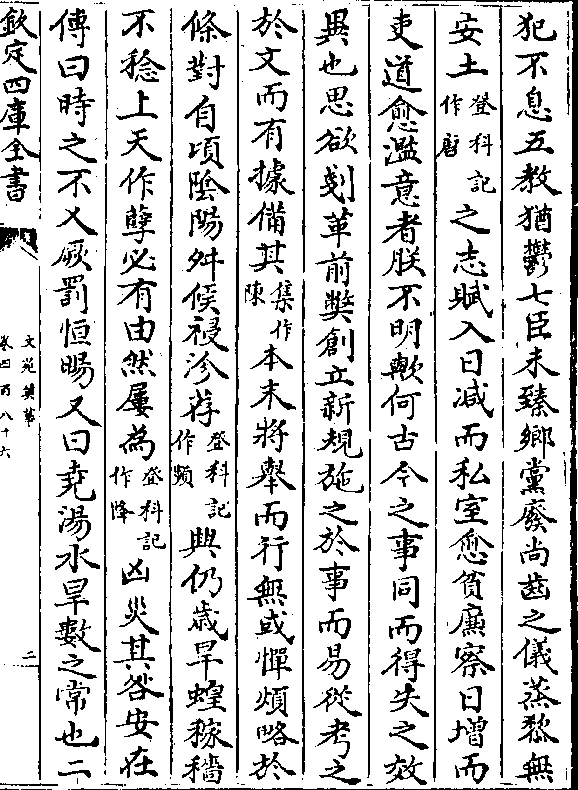 犯不息五教猶鬱七臣未臻鄉黨廢尚齒之儀蒸黎無
安土登科記作居之志賦入日减而私室愈貧廉察日增而
吏道愈濫意者朕不明歟何古今之事同而得失之效
異也思欲剗革前獘創立新規施之於事而易從考之
於文而有據備其集作陳本末將舉而行無或憚煩略於
條對自頃陰陽舛候祲沴荐登科記作頻興仍歲旱蝗稼穡
不稔上天作孽必有由然屢為登科記作降凶災其咎安在
傳曰時之不乂厥罰恒暘又曰堯湯水旱數之常也二
欽定四庫全書
文苑英華
卷四百八十六
二